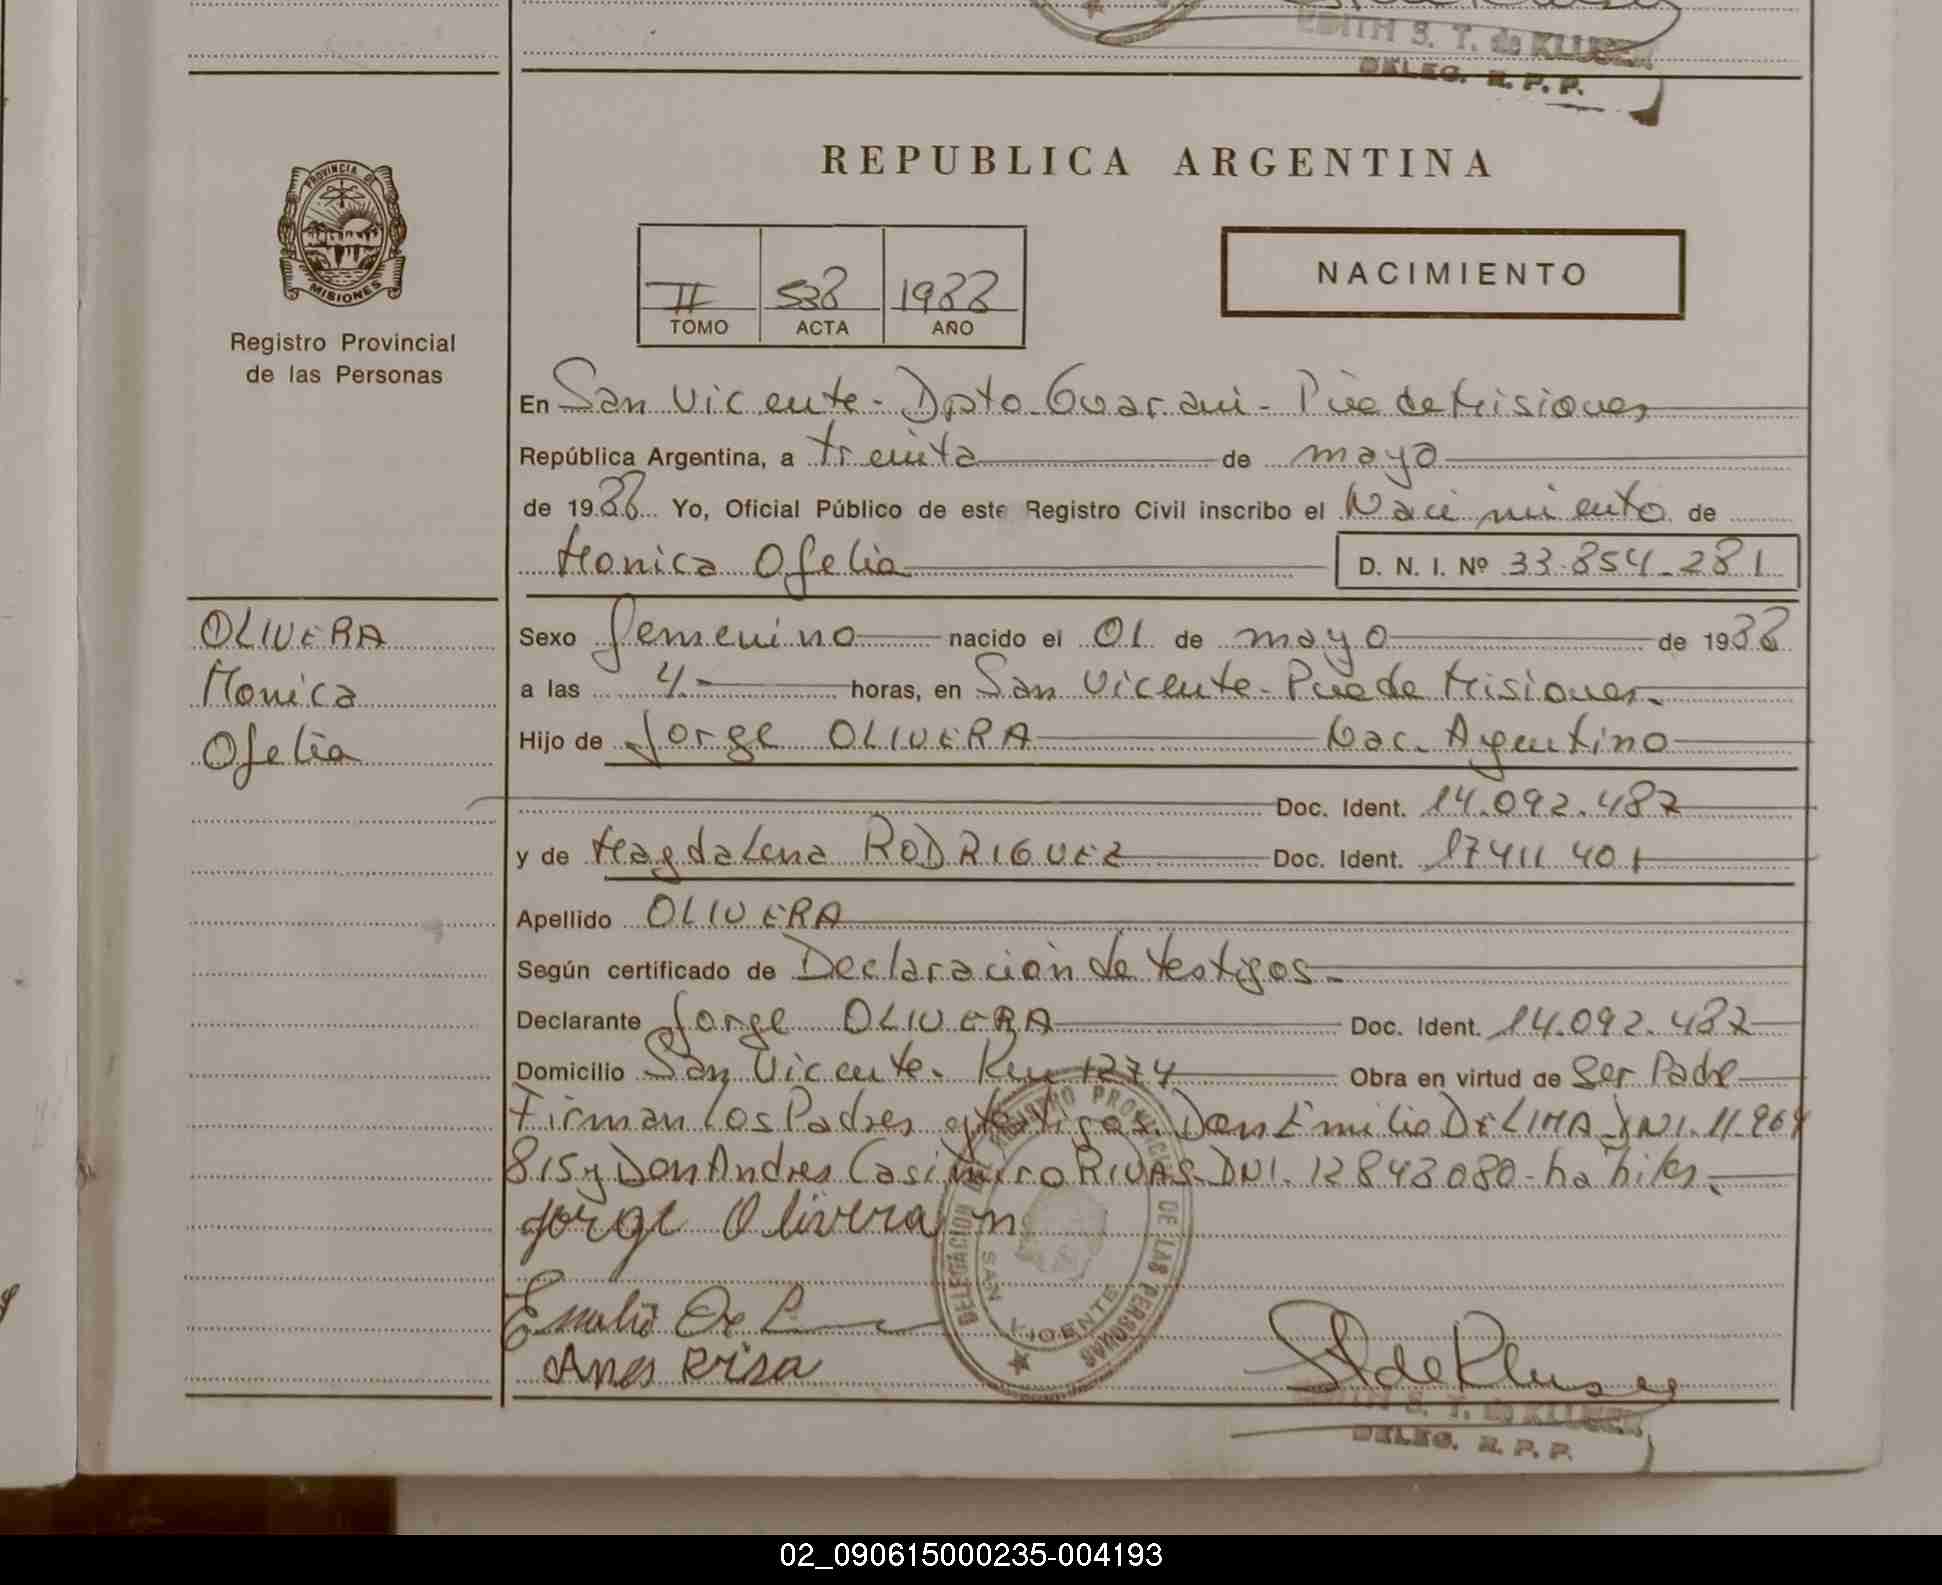 EDITH S. T. de KLUSER
DELEG. R. P. P.
PROVINCIA DE
MISIONES
Registro Provincial
de las Personas
REPUBLICA ARGENTINA
II 538 1988
TOMO ACTA AÑO
NACIMIENTO
En San Vicente - Dpto Guarani - Pcia de Misiones
República Argentina, a treinta de mayo
de 1988 Yo, Oficial Público de este Registro Civil inscribo el Nacimiento de
Monica Ofelia D. N. I. Nº 33.854.281
OLIVERA
Monica
Ofelia
Sexo femenino nacido el 01 de mayo de 1988
a las 4.- horas, en San Vicente - Pcia de Misiones.
Hijo de Jorge OLIVERA Nac. Argentino
Doc. Ident. 14.092.487
y de Magdalena RODRIGUEZ Doc. Ident. 17411401
Apellido OLIVERA
Según certificado de Declaración de testigos.
Declarante Jorge OLIVERA Doc. Ident. 14.092.487
Domicilio San Vicente. Km 1274 Obra en virtud de Ser Padre
Firman los Padres y testigos. Don Emilio DE LIMA DNI. 11.964
815 y Don Andres Casimiro RIVAS. DNI. 12843080 - habiles.
Jorge Olivera m
DELEGACION REGISTRO PROVINCIAL DE LAS PERSONAS
SAN VICENTE
Emilio De L
EDITH S. T. de KLUSER
DELEG. R. P. P.
02_090615000235-004193